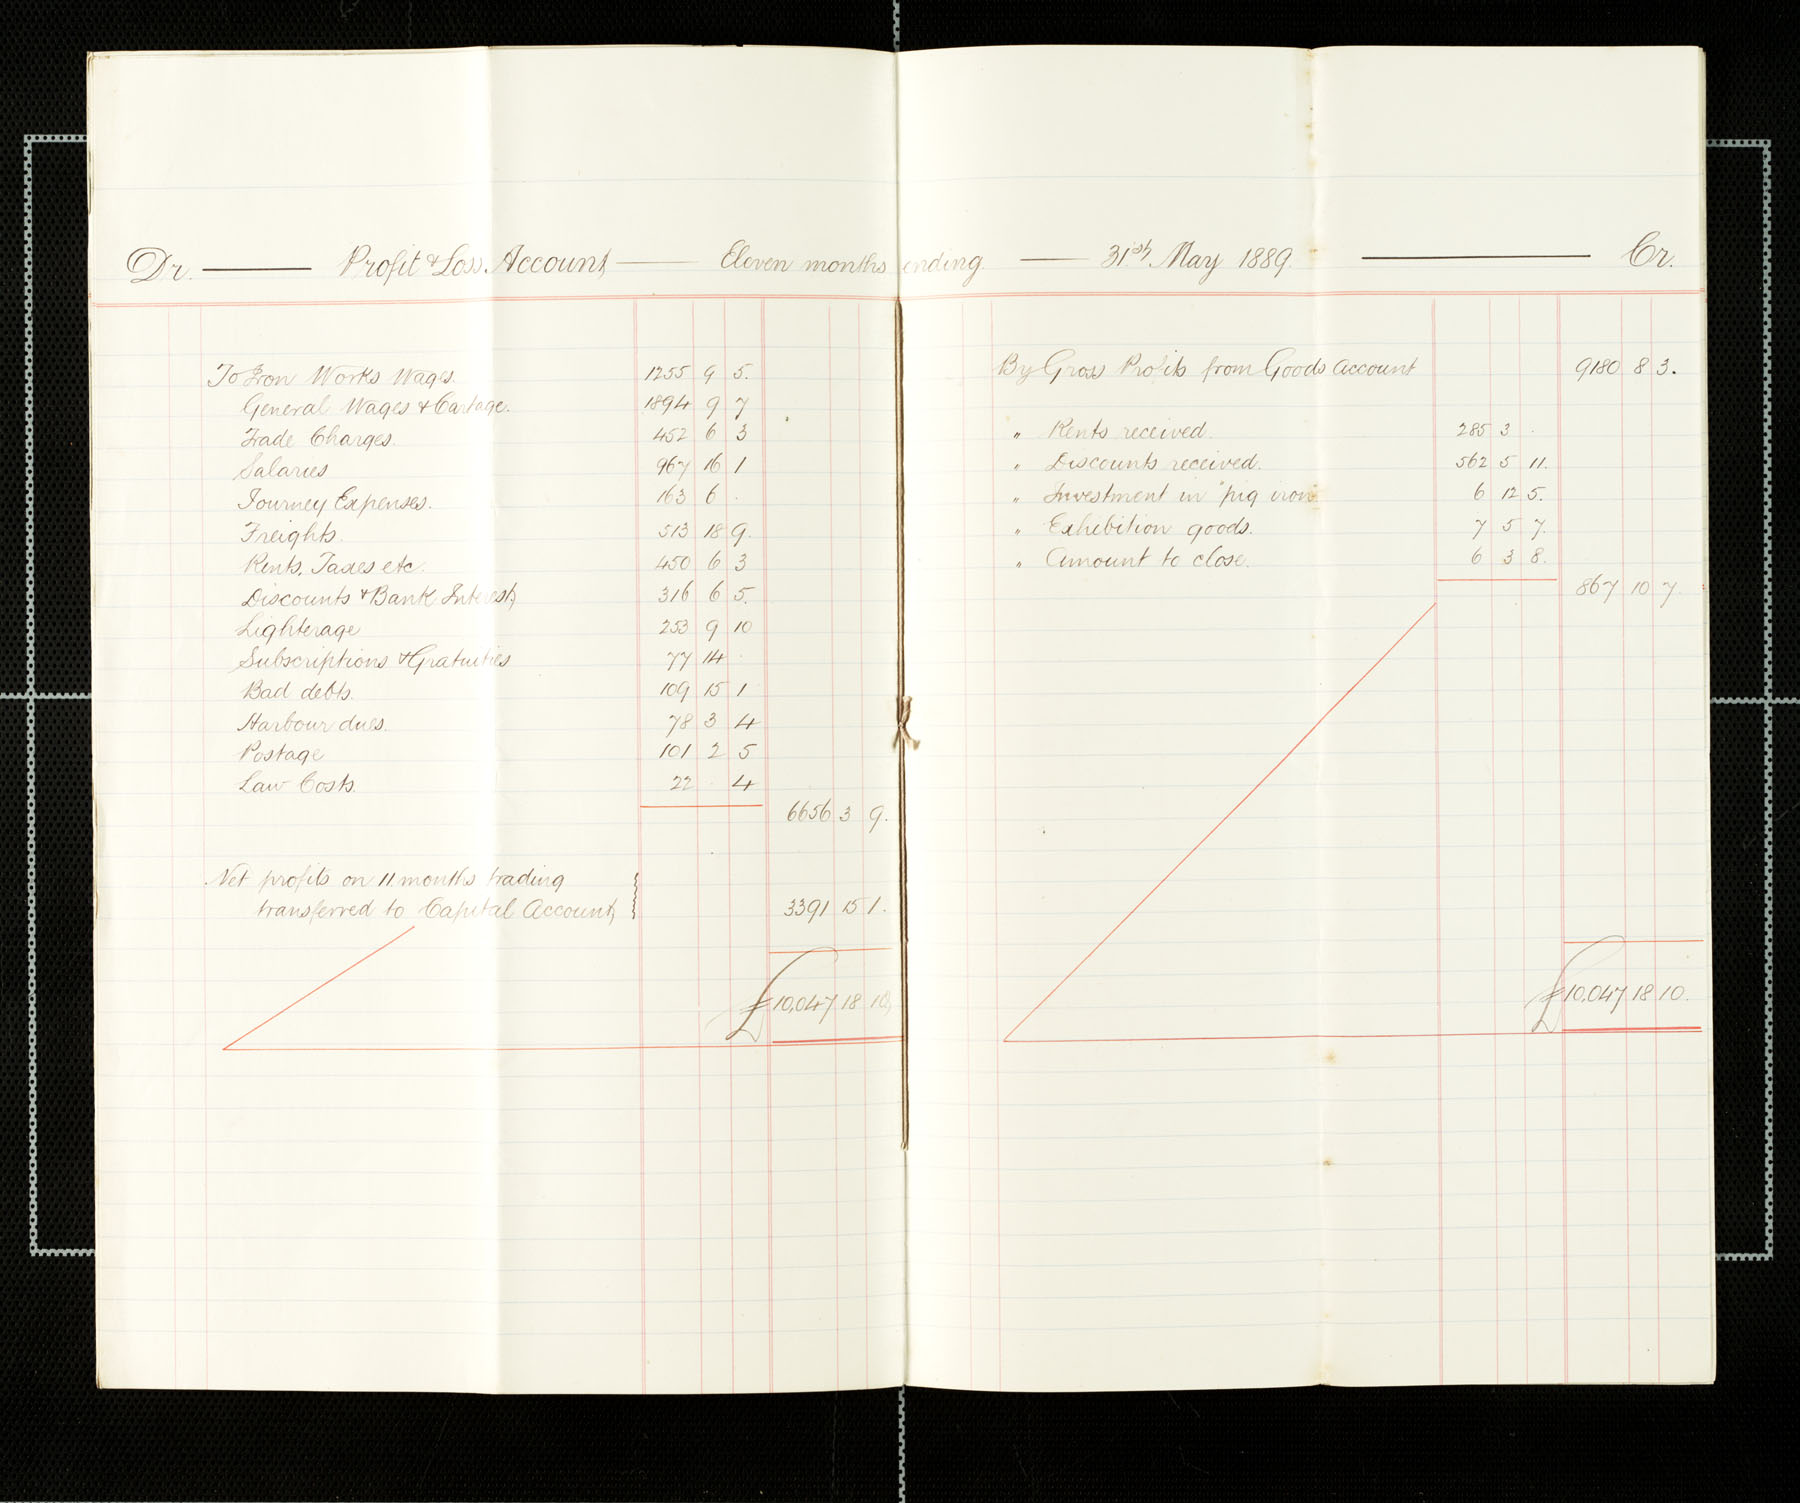 Dr. Profit & Loss Account Eleven months ending 31st May 1889. Cr.
To Iron Works Wages. 1255 9 5.
General Wages & Cartage. 1894 9 7
Trade Charges. 452 6 3
Salaries 967 16 1
Journey Expenses. 163 6 .
Freights. 513 18 9.
Rents, Taxes etc. 450 6 3
Discounts & Bank Interest, 316 6 5.
Lighterage 253 9 10
Subscriptions & Gratuities 77 14 .
Bad debts. 109 15 1
Harbour dues. 78 3 4
Postage 101 2 5
Law Costs. 22 . 4
6656 3 9.
Net profits on 11 months trading
transferred to Capital Account, 3391 15 1.
£10,047 18 10,
By Gross Profits from Goods Account 9180 8 3.
" Rents received. 285 3 .
" Discounts received. 562 5 11.
" Investment in "pig iron" 6 12 5.
" Exhibition goods. 7 5 7.
" Amount to close. 6 3 8.
867 10 7.
£10,047 18 10.